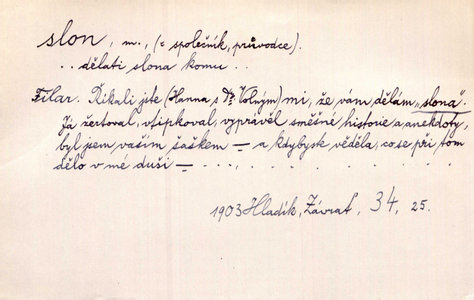 slon, m., (= společník, průvodce).
.. dělati slona komu ..
Filar. Říkali jste (Hanna s Dr. Volným) mi, že vám dělám „slona“.
Já žertoval, vtipkoval, vyprávěl směšné historie a anekdoty,
byl jsem vaším šaškem — a kdybyste věděla, co se při tom
dělo v mé duši — . . . . . . . . . .
1903 Hladík, Závrať, 34, 25.